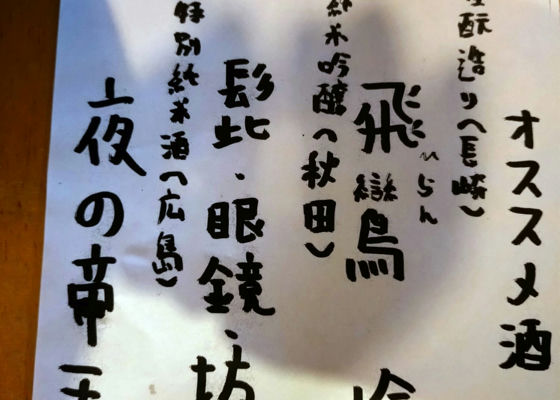 オススメ酒
酛造り(長崎)
飛鸞
ひらん
純米吟醸(秋田)
髭・眼鏡・坊
特別純米酒(広島)
夜の帝王